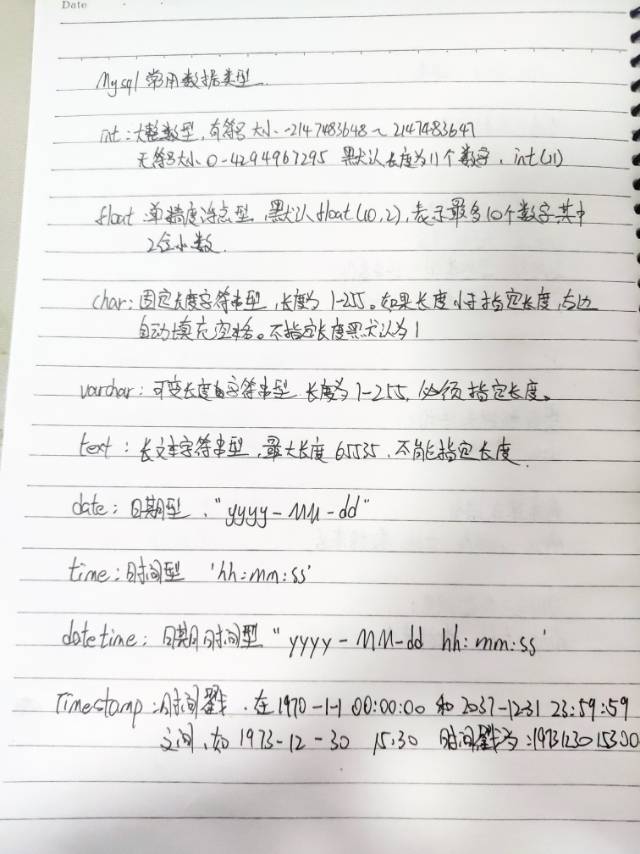 Date
Mysql 常用数据类型
int：大整数型，有符号大小 -2147483648 ~ 2147483647
无符号大小 0-4294967295 默认长度为11个数字，int(11)
float 单精度浮点型，默认float(10,2)，表示最多10个数字其中
2位小数
char：固定长度字符串型，长度为 1-255。如果长度小于指定长度，右边
自动填充空格。不指定长度默认为1
varchar：可变长度的字符串型 长度为1-255，必须指定长度。
text：长文本字符串型，最大长度 65535，不能指定长度
date：日期型，"yyyy-MM-dd"
time：时间型 'hh:mm:ss'
datetime：日期时间型 "yyyy-MM-dd hh:mm:ss'
Timestamp：时间戳，在1970-1-1 00:00:00 和 2037-12-31 23:59:59
之间，如 1973-12-30 15:30 时间戳为：197312301530